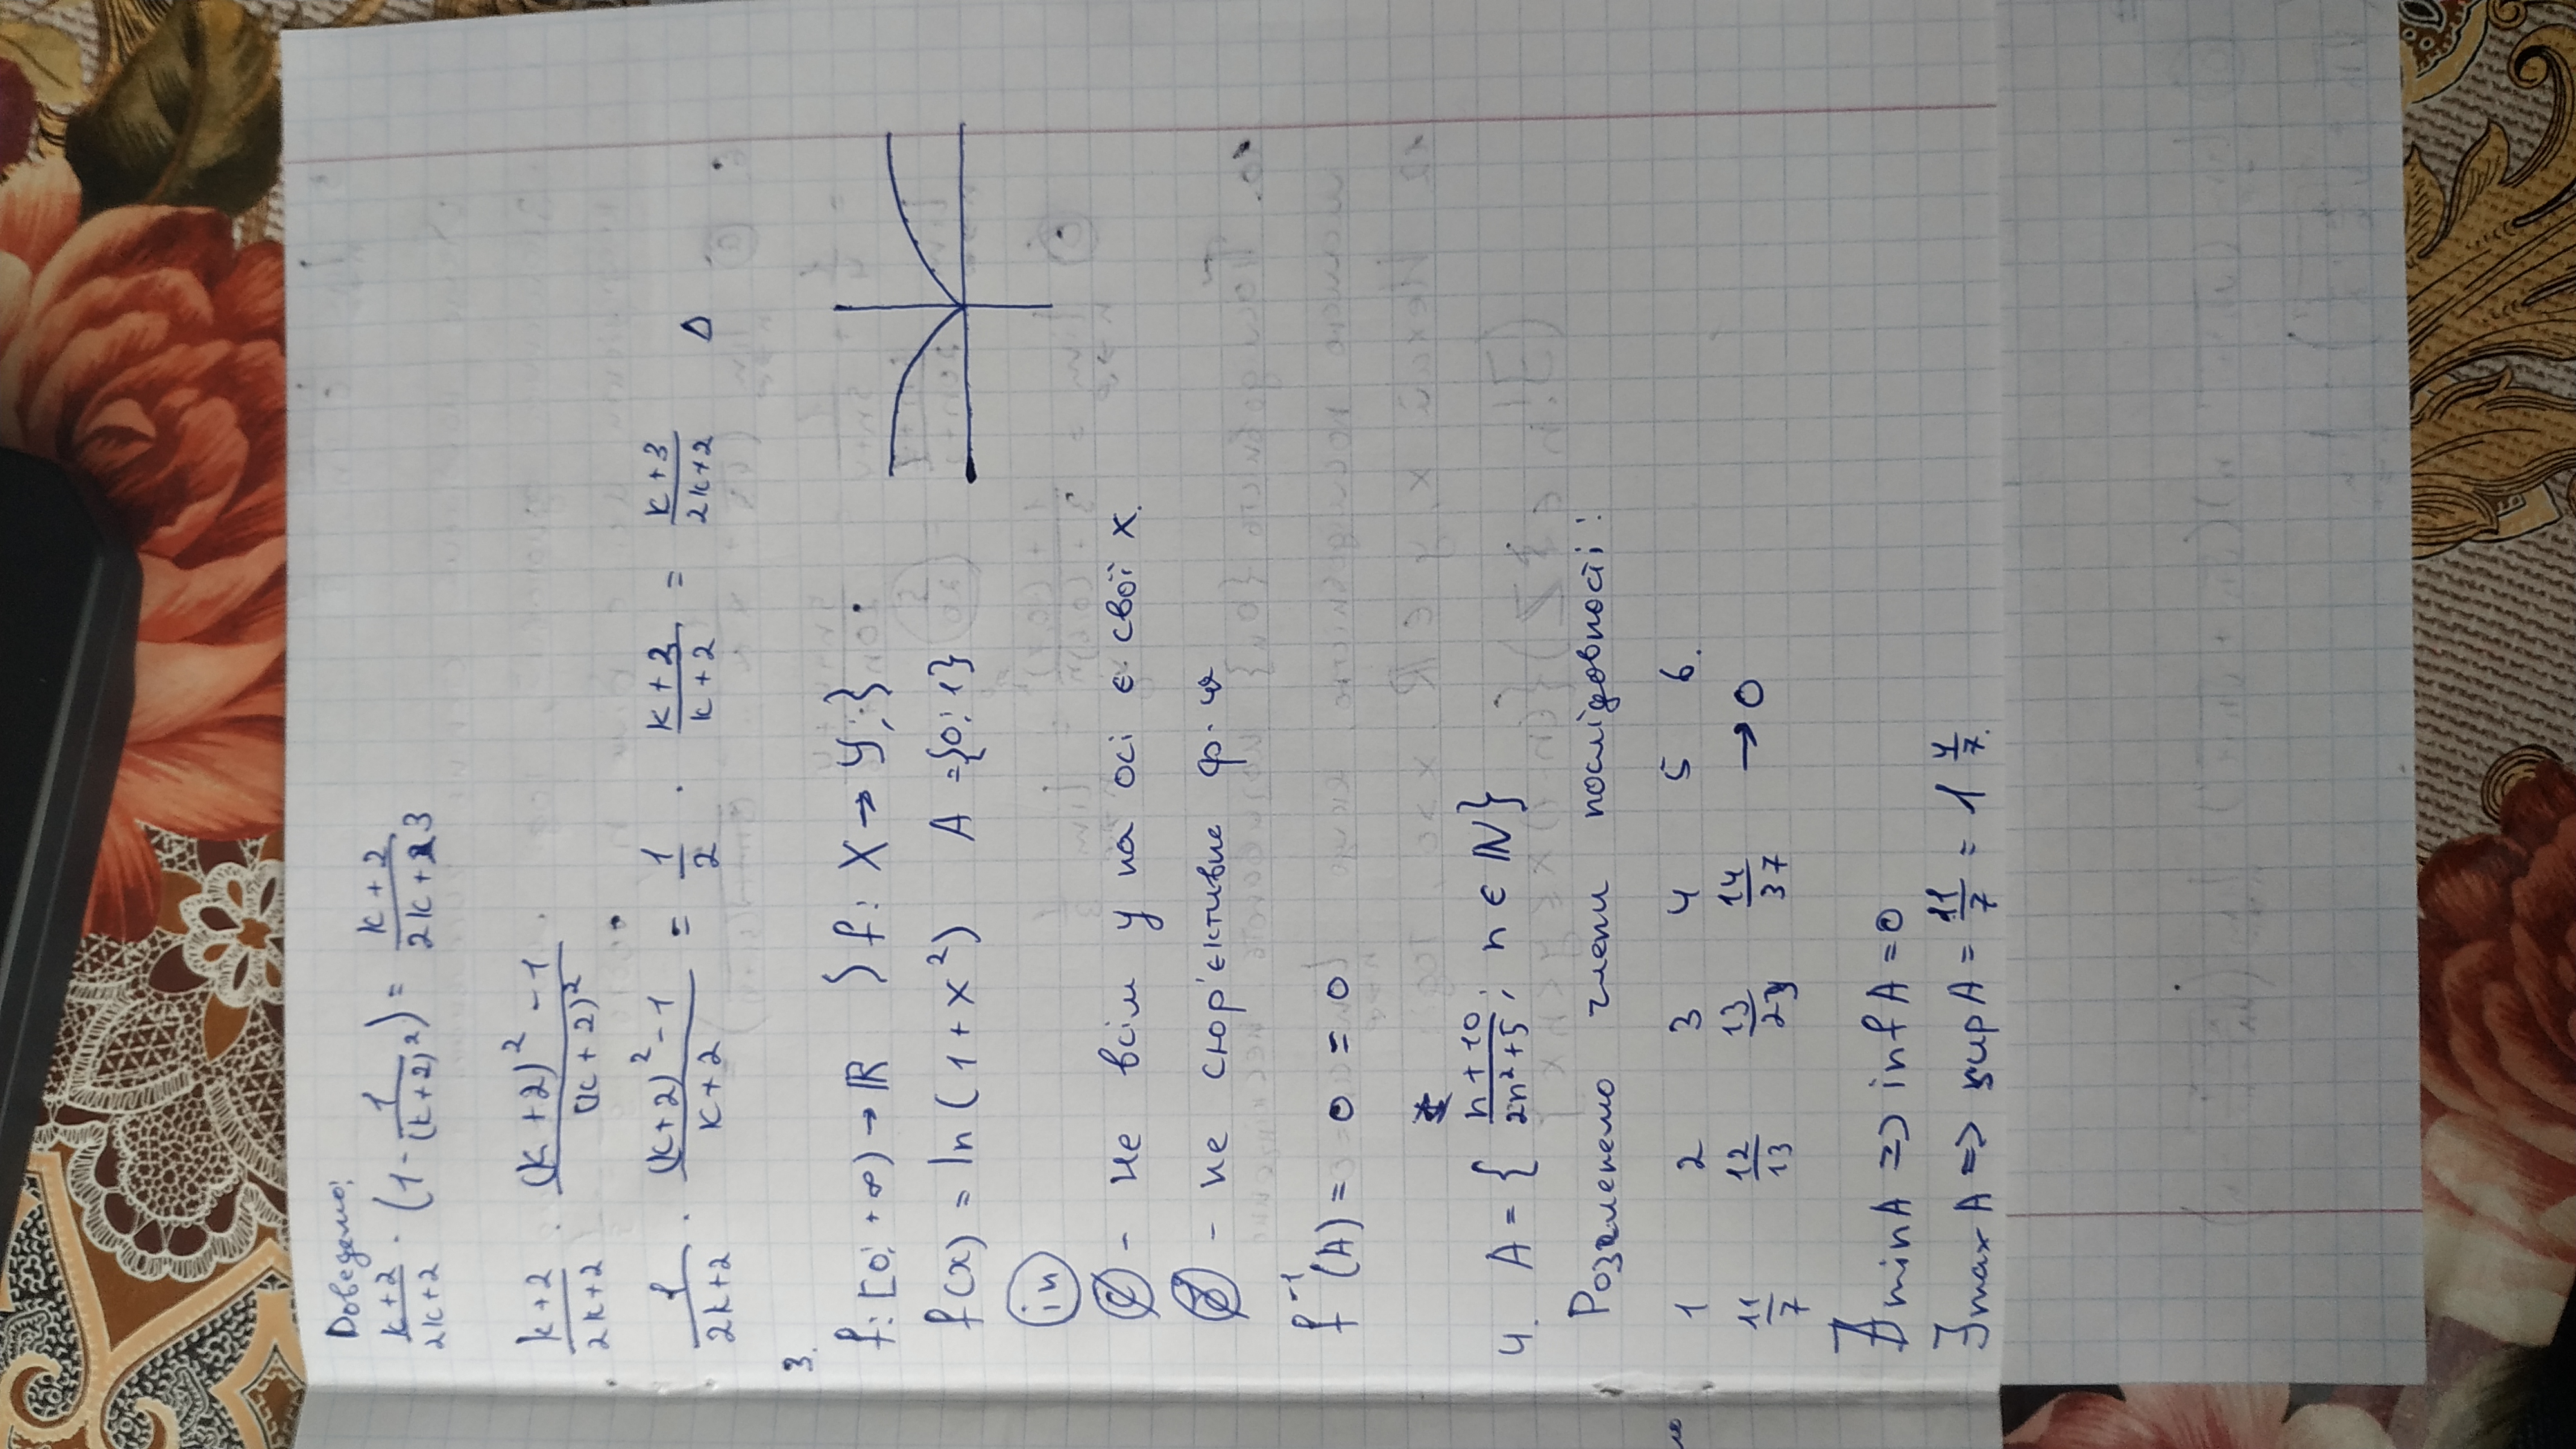 Доведемо:
k+2/2k+2 · (1 - 1/(k+2)²) = k+2/2k+3
k+2/2k+2 · (k+2)² - 1/(k+2)²
1/2k+2 · (k+2)² - 1/k+2 = 1/2 · k+2/k+2 = k+3/2k+2 Δ
3.
f: [0; +∞) → ℝ } f: X → Y; }
f(x) = ln(1+x²) A = {0; 1}
in
- не всім y на осі є свої x.
- не сюр'єктивне ф-ія
f⁻¹(A) = 0 = 0
4. A = { n+10/2n²+5; n ∈ ℕ }
Розглянемо члени послідовності:
1 2 3 4 5 6.
11/7 12/13 13/23 14/37 → 0
∄ min A => inf A = 0
∃ max A => sup A = 11/7 = 1 4/7.